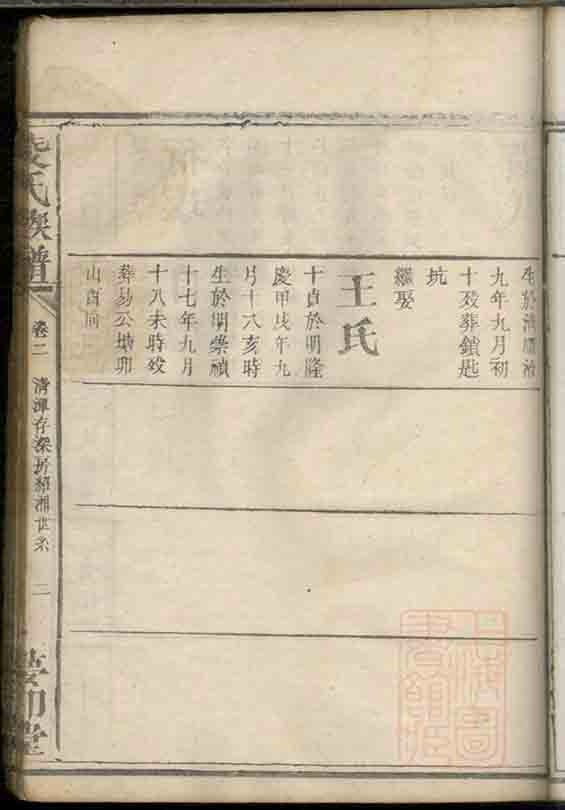 生於清順治
九年九月初
十歿葬鎖匙
坑
繼娶
王氏
十貞於明隆
慶甲戌年九
月十八亥時
生於明崇禎
十七年九月
十八未時歿
葬易公塘卯
山酉向
氏族譜
卷二
清潭存深房紹湘世系
二
上海圖
書館藏